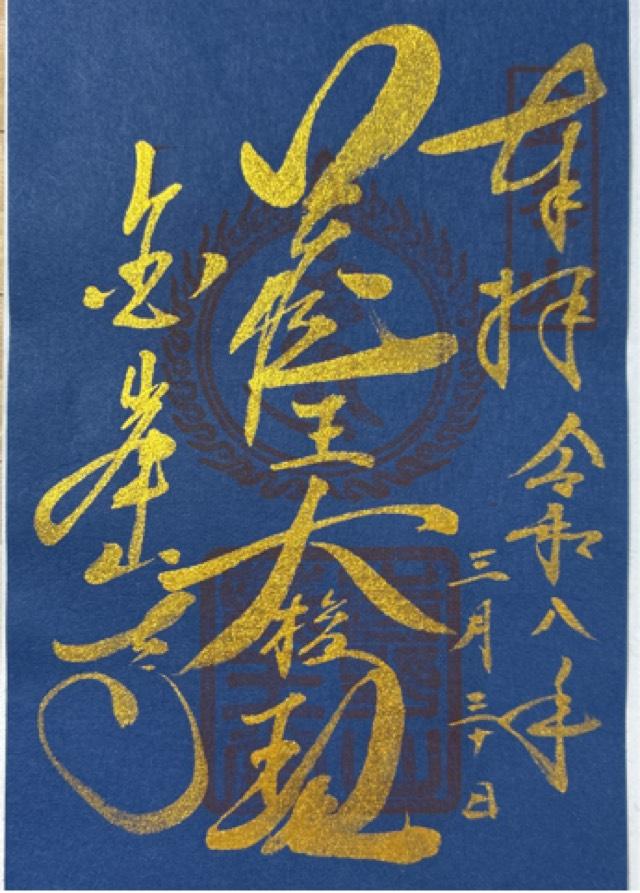 奉拝
令和八年
三月三十日
蔵王大権現
金峯山寺